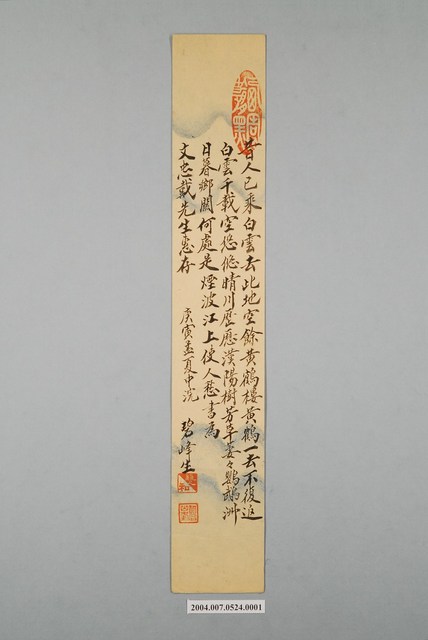 昔人已乘白雲去此地空餘黃鶴樓黃鶴一去不復返
白雲千載空悠悠晴川歷歷漢陽樹芳草萋々鸚鵡洲
日暮鄉關何處是煙波江上使人愁書為
文忠戴先生惠存
庚寅孟夏中沅
碧峰生
2004.007.0524.0001